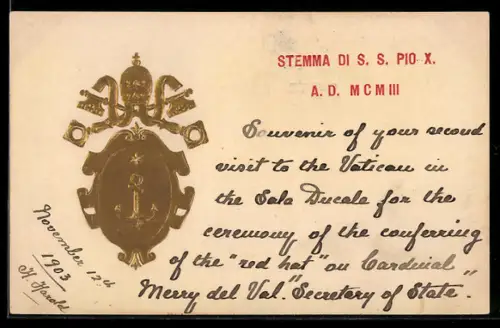 STEMMA DI S. S. PIO X.
A. D. MCMIII
Souvenir of your second
visit to the Vatican in
the Sala Ducale for the
ceremony of the conferring
of the "red hat" on Cardinal
Merry del Val." Secretary of State."
November 12th
1903
H. Harold